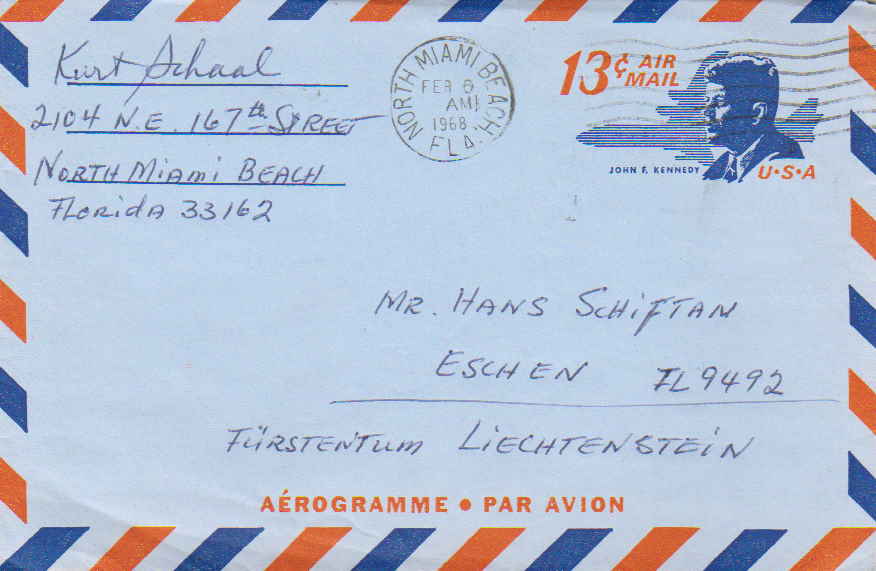 Kurt Schaal
2104 N.E. 167th STREET
NORTH MIAMI BEACH
FLORIDA 33162
NORTH MIAMI BEACH
FEB 6
AM
1968
FLA.
13¢ AIR MAIL
JOHN F. KENNEDY
U·S·A
MR. HANS SCHIFTAN
ESCHEN FL9492
FÜRSTENTUM LIECHTENSTEIN
AÉROGRAMME • PAR AVION